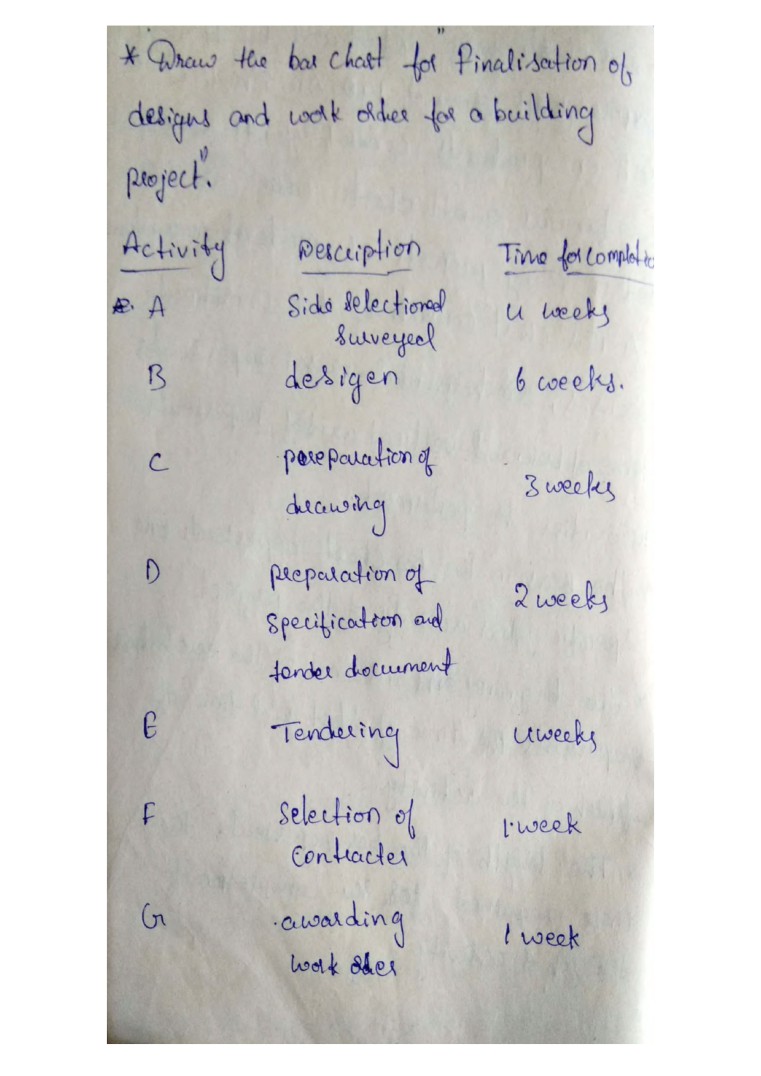 * Draw the bar chart for "finalisation of
designs and work order for a building
project".
Activity Description Time for completio
A Side selectioned 4 weeks
surveyed
B desigen 6 weeks.
C preparation of
drawing 3 weeks
D preparation of
specification and 2 weeks
tender document
E Tendering 4 weeks
F Selection of 1 week
Contracter
G awarding 1 week
work order